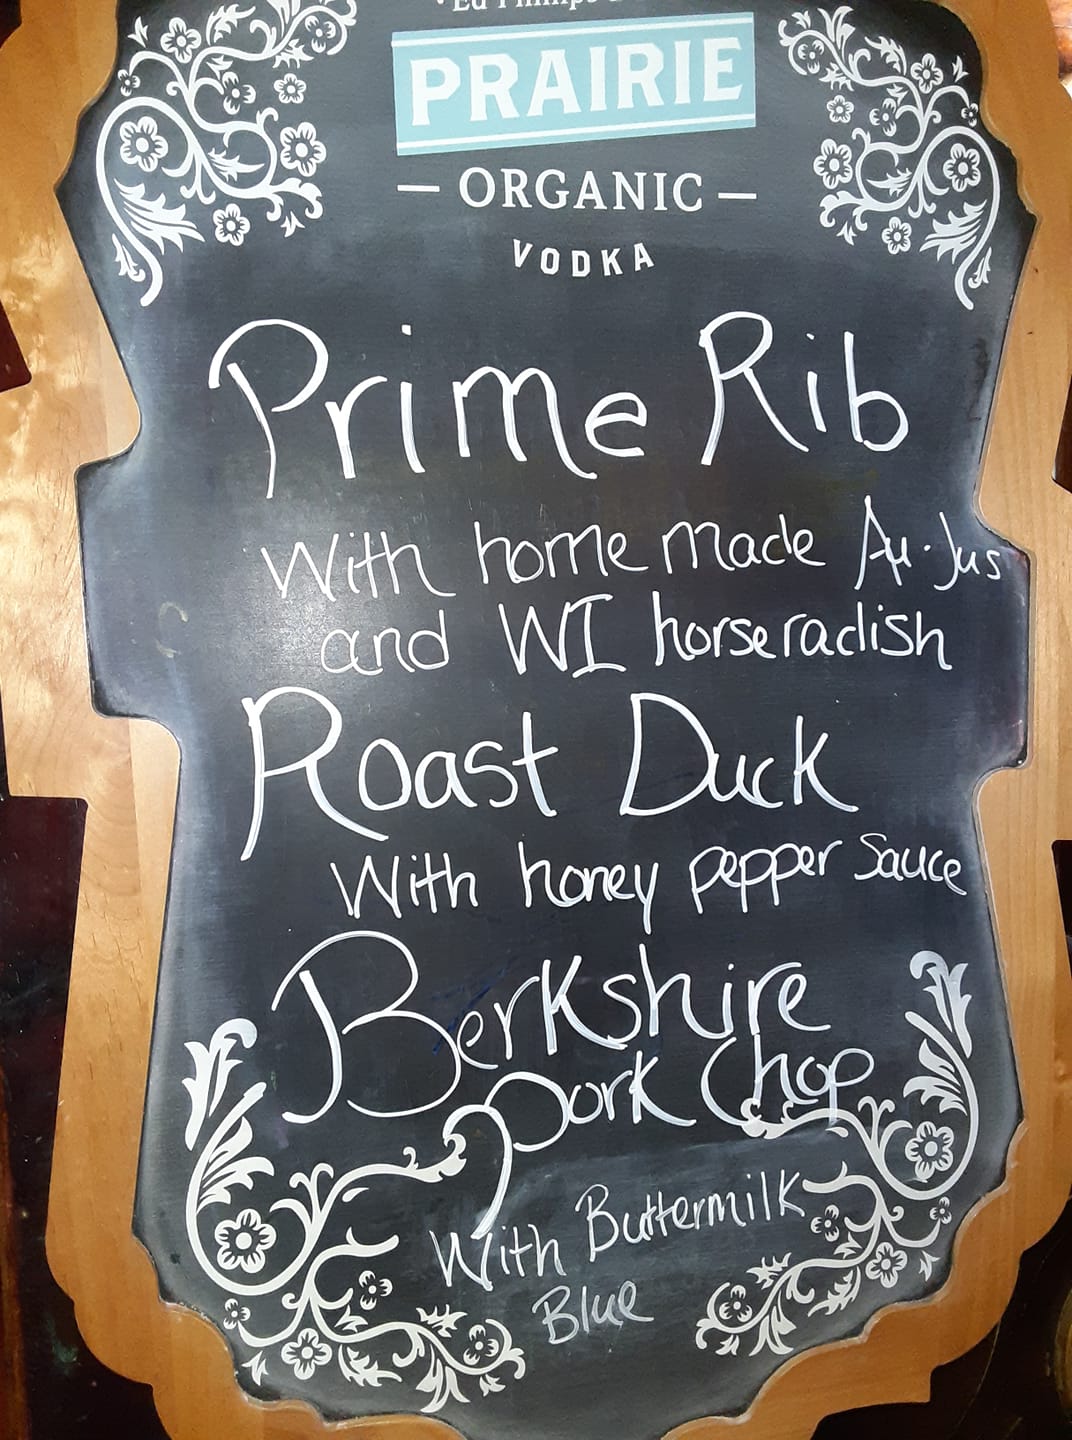 PRAIRIE
— ORGANIC —
VODKA
Prime Rib
With homemade Au·Jus
and WI horseradish
Roast Duck
With honey pepper Sauce
Berkshire
Pork Chop
With Buttermilk
Blue